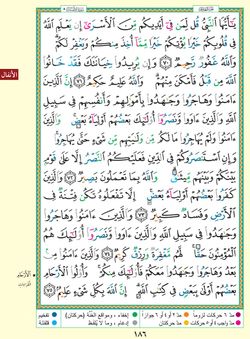 يَٰٓأَيُّهَا ٱلنَّبِيُّ قُل لِّمَن فِيٓ أَيْدِيكُم مِّنَ ٱلْأَسْرَىٰٓ إِن يَعْلَمِ ٱللَّهُ
فِي قُلُوبِكُمْ خَيْرًا يُؤْتِكُمْ خَيْرًا مِّمَّآ أُخِذَ مِنكُمْ وَيَغْفِرْ لَكُمْ
وَٱللَّهُ غَفُورٌ رَّحِيمٌ ﴿٧٠﴾ وَإِن يُرِيدُوا۟ خِيَانَتَكَ فَقَدْ خَانُوا۟
ٱللَّهَ مِن قَبْلُ فَأَمْكَنَ مِنْهُمْ وَٱللَّهُ عَلِيمٌ حَكِيمٌ ﴿٧١﴾ إِنَّ ٱلَّذِينَ
ءَامَنُوا۟ وَهَاجَرُوا۟ وَجَٰهَدُوا۟ بِأَمْوَٰلِهِمْ وَأَنفُسِهِمْ فِي سَبِيلِ
ٱللَّهِ وَٱلَّذِينَ ءَاوَوا۟ وَّنَصَرُوٓا۟ أُو۟لَٰٓئِكَ بَعْضُهُمْ أَوْلِيَآءُ بَعْضٍ وَٱلَّذِينَ
ءَامَنُوا۟ وَلَمْ يُهَاجِرُوا۟ مَا لَكُم مِّن وَلَٰيَتِهِم مِّن شَيْءٍ حَتَّىٰ يُهَاجِرُوا۟
وَإِنِ ٱسْتَنصَرُوكُمْ فِي ٱلدِّينِ فَعَلَيْكُمُ ٱلنَّصْرُ إِلَّا عَلَىٰ قَوْمٍ
بَيْنَكُمْ وَبَيْنَهُم مِّيثَٰقٌ وَٱللَّهُ بِمَا تَعْمَلُونَ بَصِيرٌ ﴿٧٢﴾ وَٱلَّذِينَ
كَفَرُوا۟ بَعْضُهُمْ أَوْلِيَآءُ بَعْضٍ إِلَّا تَفْعَلُوهُ تَكُن فِتْنَةٌ فِي
ٱلْأَرْضِ وَفَسَادٌ كَبِيرٌ ﴿٧٣﴾ وَٱلَّذِينَ ءَامَنُوا۟ وَهَاجَرُوا۟
وَجَٰهَدُوا۟ فِي سَبِيلِ ٱللَّهِ وَٱلَّذِينَ ءَاوَوا۟ وَّنَصَرُوٓا۟ أُو۟لَٰٓئِكَ هُمُ
ٱلْمُؤْمِنُونَ حَقًّا لَّهُم مَّغْفِرَةٌ وَرِزْقٌ كَرِيمٌ ﴿٧٤﴾ وَٱلَّذِينَ ءَامَنُوا۟ مِنۢ
بَعْدُ وَهَاجَرُوا۟ وَجَٰهَدُوا۟ مَعَكُمْ فَأُو۟لَٰٓئِكَ مِنكُمْ وَأُو۟لُوا۟ ٱلْأَرْحَامِ
بَعْضُهُمْ أَوْلَىٰ بِبَعْضٍ فِي كِتَٰبِ ٱللَّهِ إِنَّ ٱللَّهَ بِكُلِّ شَيْءٍ عَلِيمٌ ﴿٧٥﴾
الأنفال
١٨٦